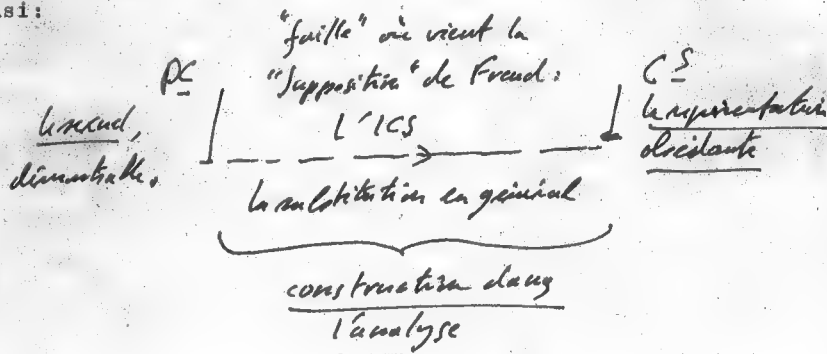 nsi:
"faille" où vient la
"supposition" de Freud:
PC
CS
L'ICS
le sexuel,
la représentation
obsédante
la substitution en général
construction dans
l'analyse